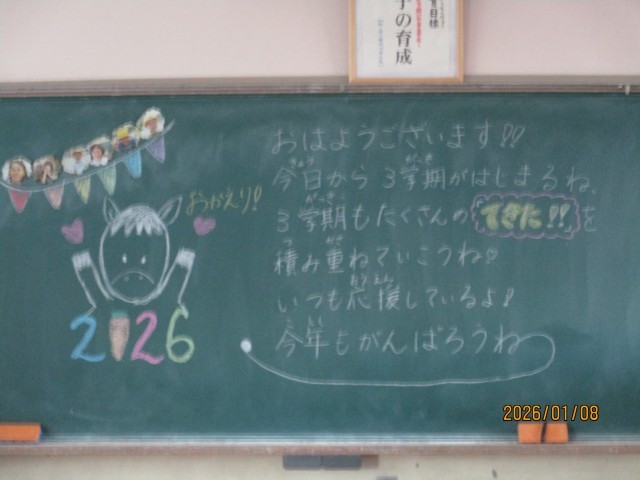 子の育成
おかえり!
2026
おはようございます!!
今日から3学期がはじまるね、
3学期もたくさんのできた!!を
積み重ねていこうね♡
いつも応援しているよ!
今年もがんばろうね
2026/01/08